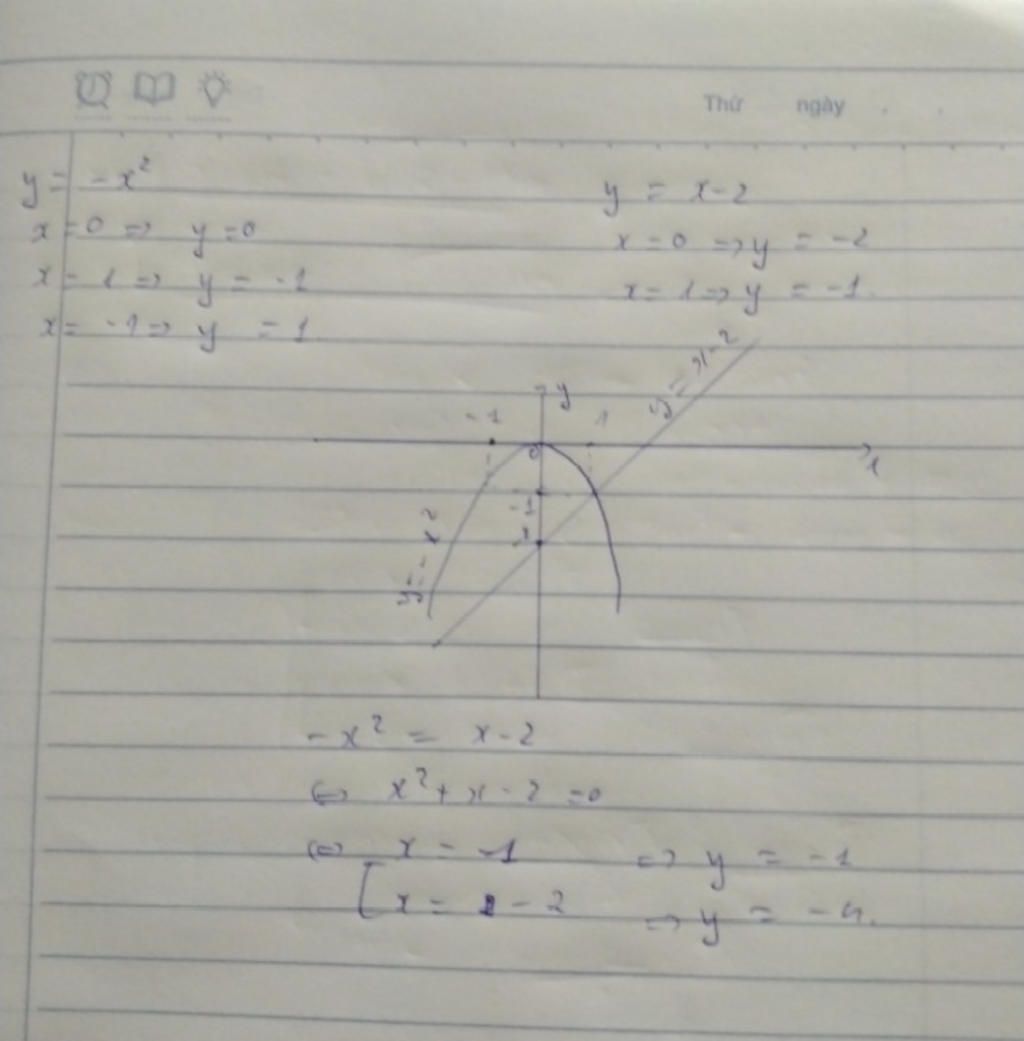 Thứ ngày
y = -x²
x = 0 => y = 0
x = 1 => y = -1
x = -1 => y = 1
y = x-2
x = 0 => y = -2
x = 1 => y = -1.
y
y = x-2
-1
1
0
x
-1
y = -x²
-x² = x-2
<=> x²+x-2 =0
<=> [ x = -1 => y = -1
x = -2 => y = -4.